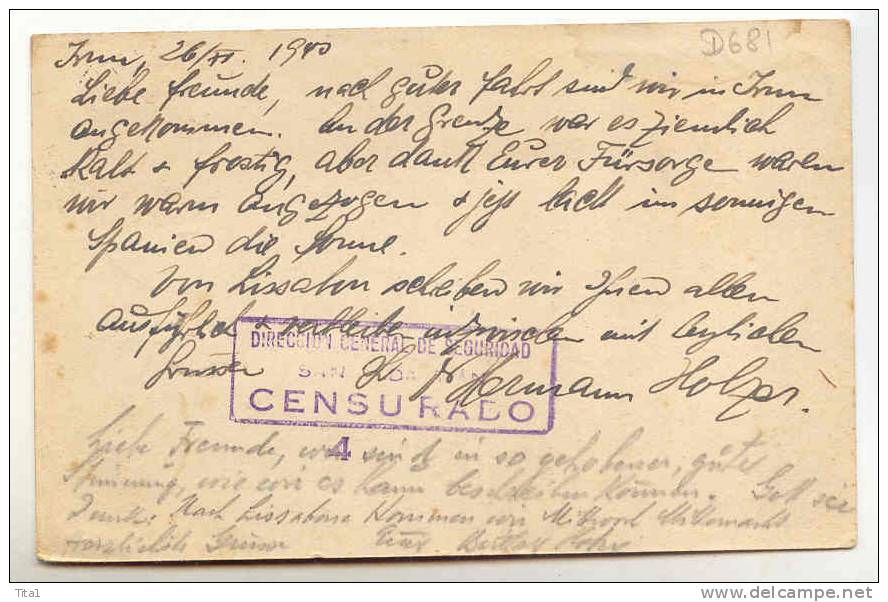 Irun, 26/XI. 1940
D681
Liebe Freunde, nach guter Fahrt sind wir in Irun
angekommen. An der Grenze war es ziemlich
kalt + frostig, aber dank Eurer Fürsorge waren
wir warm angezogen + jetzt lacht im sonnigen
Spanien die Sonne.
Von Lissabon schreiben wir Ihnen allen
ausführlich + verbleiben inzwischen mit herzlichen
Grüssen Hermann
DIRECCION GENERAL DE SEGURIDAD
SAN
CENSURADO
4
Liebe Freunde, wir sind in so gehobener, guter
Stimmung, wie wir es kaum beschreiben können. Gott sei
Dank. Nach Lissabon kommen wir Mittwoch Mitternacht
herzlichste Grüsse Eure
Tital
www.delcampe.net